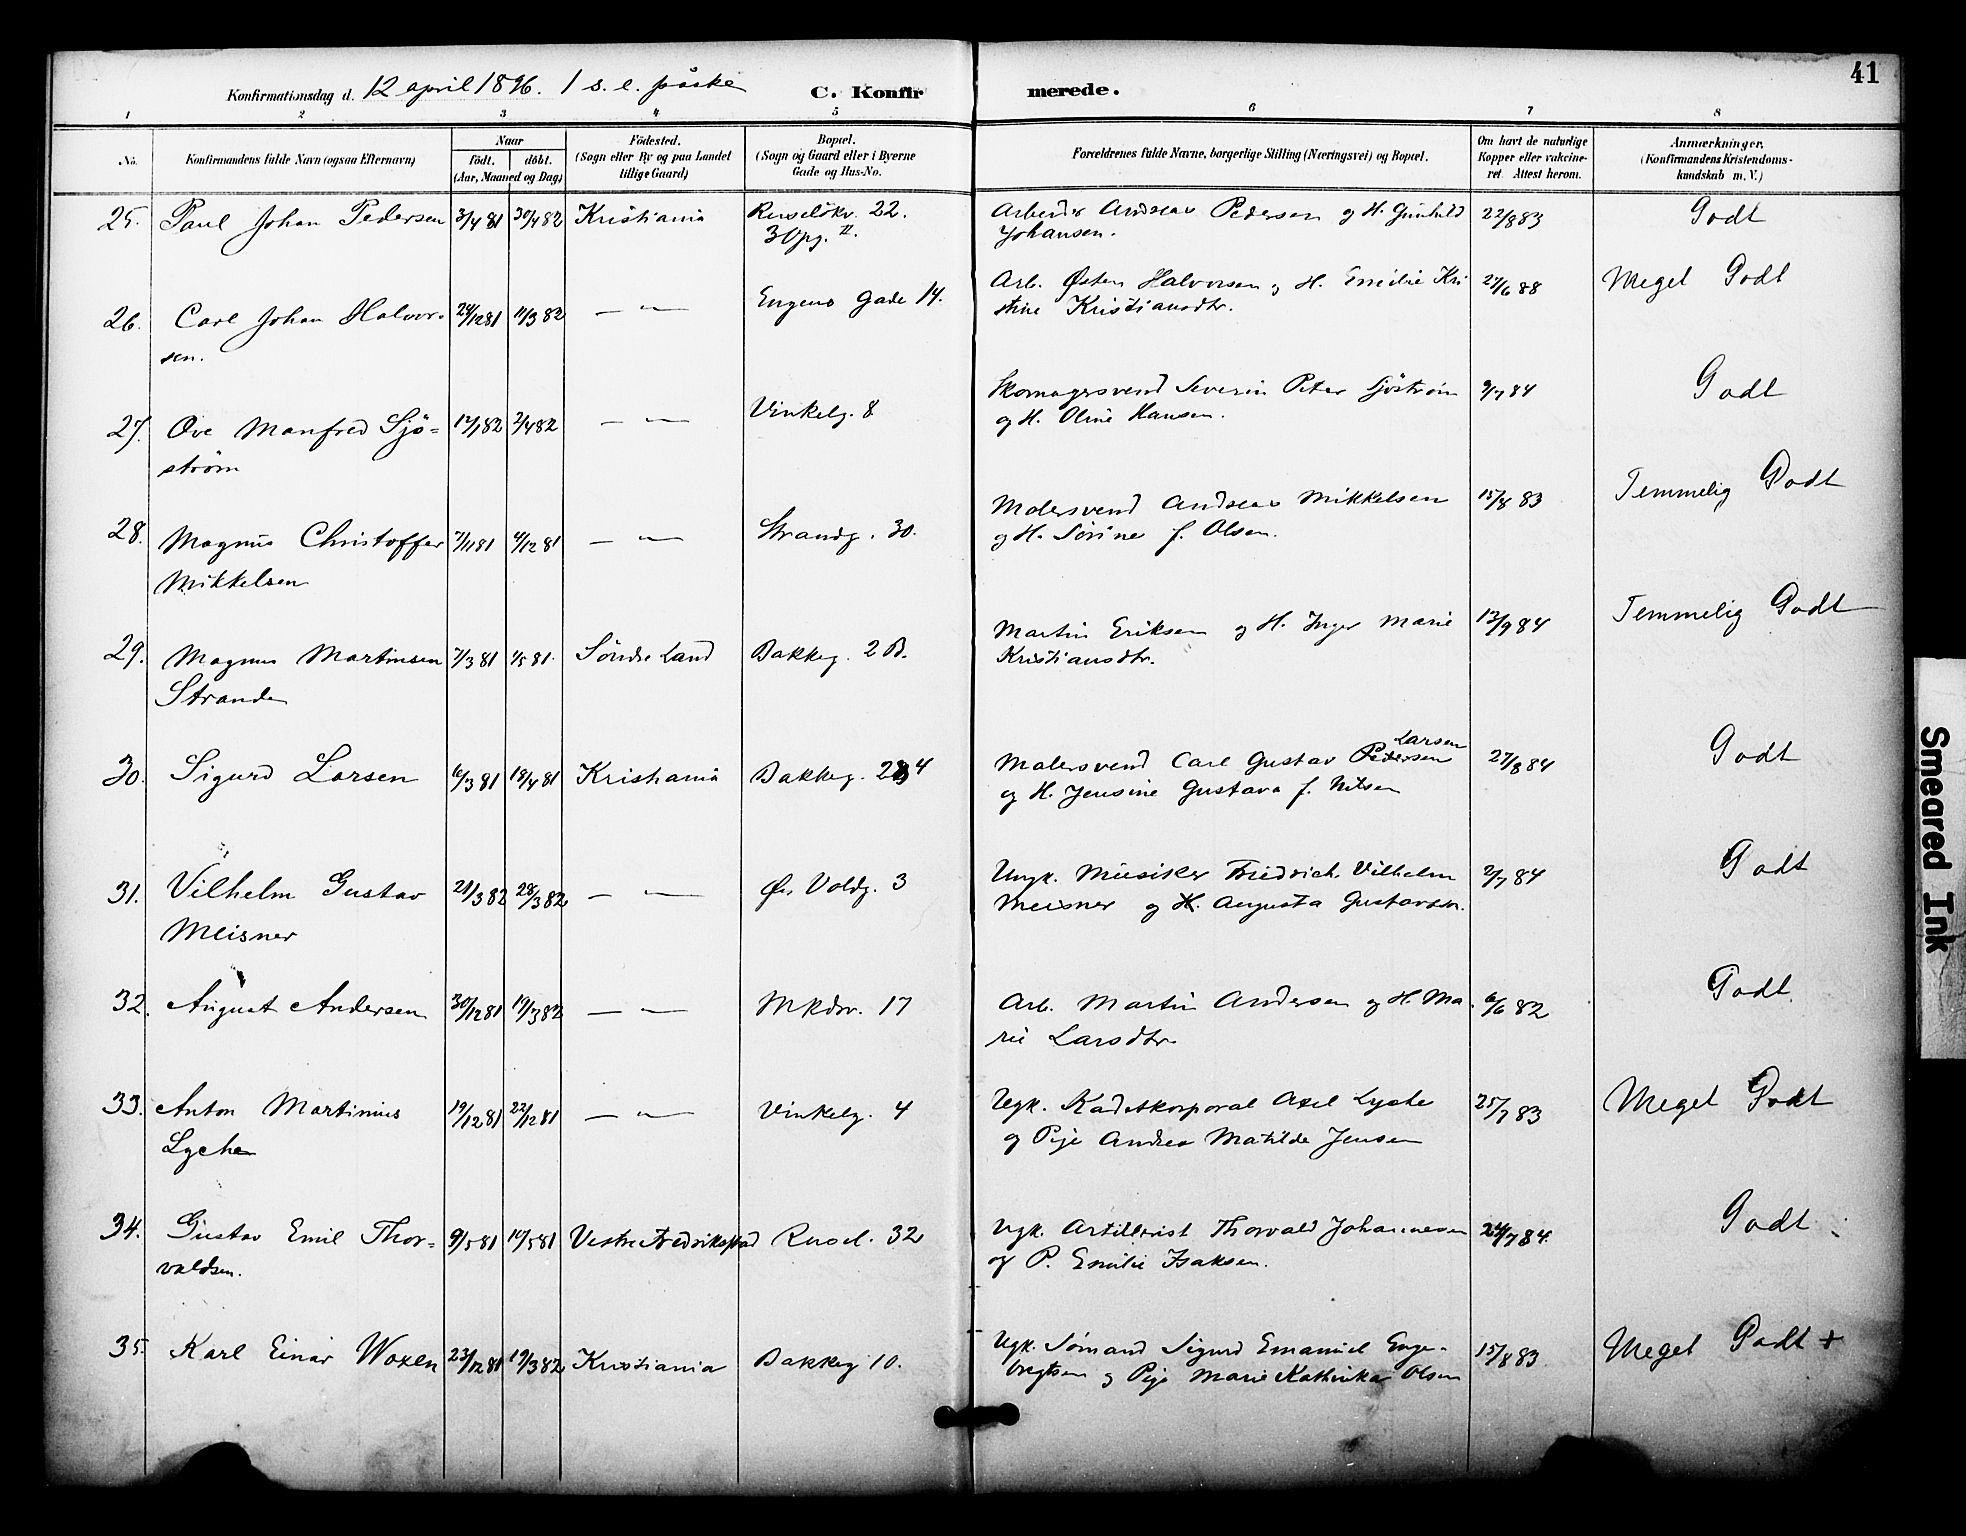 41
Konfirmationsdag d. 12 april 1896. 1 s. e. påske C. Konfirmerede.
1 2 3 4 5 6 7 8
No. Konfirmandens fulde Navn (ogsaa Efternavn) Naar födt. döbt. (Aar, Maaned og Dag) Födested. (Sogn eller By og paa Landet tillige Gaard) Bopæl. (Sogn og Gaard eller i Byerne Gade og Hus-No. Forældrenes fulde Navne, borgerlige Stilling (Næringsvei) og Bopæl. Om havt de naturlige Kopper eller vakcineret. Attest herom. Anmærkninger. (Konfirmandens Kristendomskundskab m. V.)
25. Paul Johan Pedersen 3/4 81 30/4 82 Kristiania Ruseløkv. 22. Arbeider Andreas Pedersen og H. Gunhild 22/8 83 Godt
3 Opg. II. Johansen.
26. Carl Johan Halvor- 24/12 81 11/3 82 — " — Eugens Gade 14. Arb. Østen Halvorsen og H. Emilie Kri 27/6 88 Meget Godt
sen. stine Kristiansdtr.
27. Ove Manfred Sjö- 12/1 82 2/4 82 — " — Vinkelg. 8 Skomagersvend Severin Peter Sjöström 9/7 84 Godt
strøm og H. Oline Hansen.
28. Magnus Christoffer 7/11 81 4/12 81 — " — Strandg. 30. Malersvend Andreas Mikkelsen 15/8 83 Temmelig Godt
Mikkelsen og H. Sørine f. Olsen.
29. Magnus Martinsen 7/3 81 1/5 81. Söndre Land Bakkeg. 2 B. Martin Eriksen og H. Inger Marie 13/9 84 Temmelig Godt
Stranden Kristiansdtr.
30. Sigurd Larsen 6/3 81 18/4 81 Kristiania Bakkeg. 24 Malersvend Carl Gustav Pedersen Larsen 27/8 84 Godt
og H. Jensine Gustava f. Nilsen
31. Vilhelm Gustav 21/3 82 28/3 82 — " — Øv. Voldg. 3 Ungk. Musiker Friedrich Vilhelm 2/7 84 Godt
Meisner Meisner og H. Augusta Gustavsen.
32. August Andersen 30/12 81 19/3 82 — " — Mkdv. 17 Arb. Martin Andersen og H. Ma- 6/6 82 Godt.
rie Larsdtr.
33. Anton Martinius 19/12 81 22/12 81 — " — Vinkelg. 4 Ugk. Kadetkorporal Axel Lyche 25/7 83 Meget Godt
Lyche og Pige Andrea Matilde Jensen
34. Gustav Emil Thor- 9/5 81 19/5 81 Vestre Fredrikstad Rusel. 32 Ugk. Artillerist Thorvald Johannesen 24/7 84. Godt
valdsen. og P. Emilie Isaksen.
35. Karl Einar Woxen 23/12 81 19/3 82 Kristiania Bakkeg 10. Ugk. Sömand Sigurd Emanuel Enge- 15/8 83 Meget Godt +
bregtsen og Pige Marie Kathinka Olsen
Smeared Ink